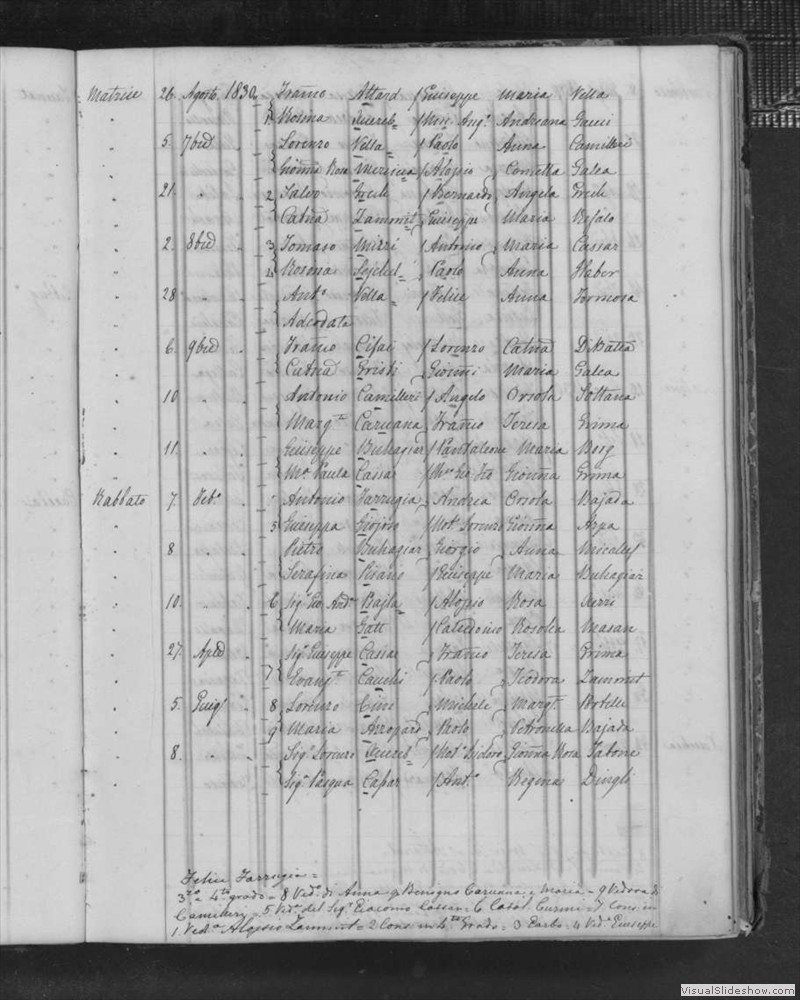 Matrice 26 Agosto 1830 Franco Attard Giuseppe Maria Vella
1 Rosina Quereb Mro Ango Andreana Gauci
5 7bre Lorenzo Vella Paolo Anna Camilleri
Rosa Aloysio Cometta Galea
21 " " 2 Salvo Grech Bernardo Angela Grech
Catna Zammit Giuseppe Maria Refalo
2 8bre 3 Tomaso Mizzi Antonio Maria Cassar
4 Rosina Paolo Anna Haber
28 " " Anto Vella Felice Anna Formosa
Adeodata
6 9bre Franco Lorenzo Catna
Catna Gristi Gioñi Maria Galea
10 " " Antonio Camilleri Angelo Orsola Soltana
Margta Caruana Franco Teresa Grima
11 " " Giuseppe Buhagiar Pantaleone Maria Borg
Ma Paula Cassar Gioñna Grima
Rabbato 7 Febo Antonio Farrugia Andrea Orsola Bajada
5 Giuseppa Giojoso Not Lorenzo Gioñna Arpa
8 " " Pietro Buhagiar Giorgio Anna Micallef
Serafina Pisano Giuseppe Maria Buhagiar
10 " 6 Sigr Gio Anda Bajla Aloysio Rosa Xerri
Maria Gatt Calcedonio Rosolea Masan
27 Aple Sigr Giuseppe Cassar Franco Teresa Grima
7 Evangta Cauchi Paolo Teodora Zammit
5 Giug 8 Lorenzo Cini Michele Margta Portelli
9 Maria Azzopard Paolo Petronella Bajada
8 " " Sigr Lorenzo Quereb Not Isidoro Gioñna Rosa Tabone
Siga Pasqua Anto Regina Dingli
Felice Farrugia =
3zo a 4to grado = 8 Vedo di Anna q Benigno Caruana, e Maria = 9 Vedova di
Camillery = 5 Veda del Sigr Giacomo Cassar = 6 Casal Curmi = 7 Cons in
1. Veda Aloysio Zammit = 2 Cons in 4to Grado = 3 Zarbo = 4 Veda Giuseppe
VisualSlideshow.com